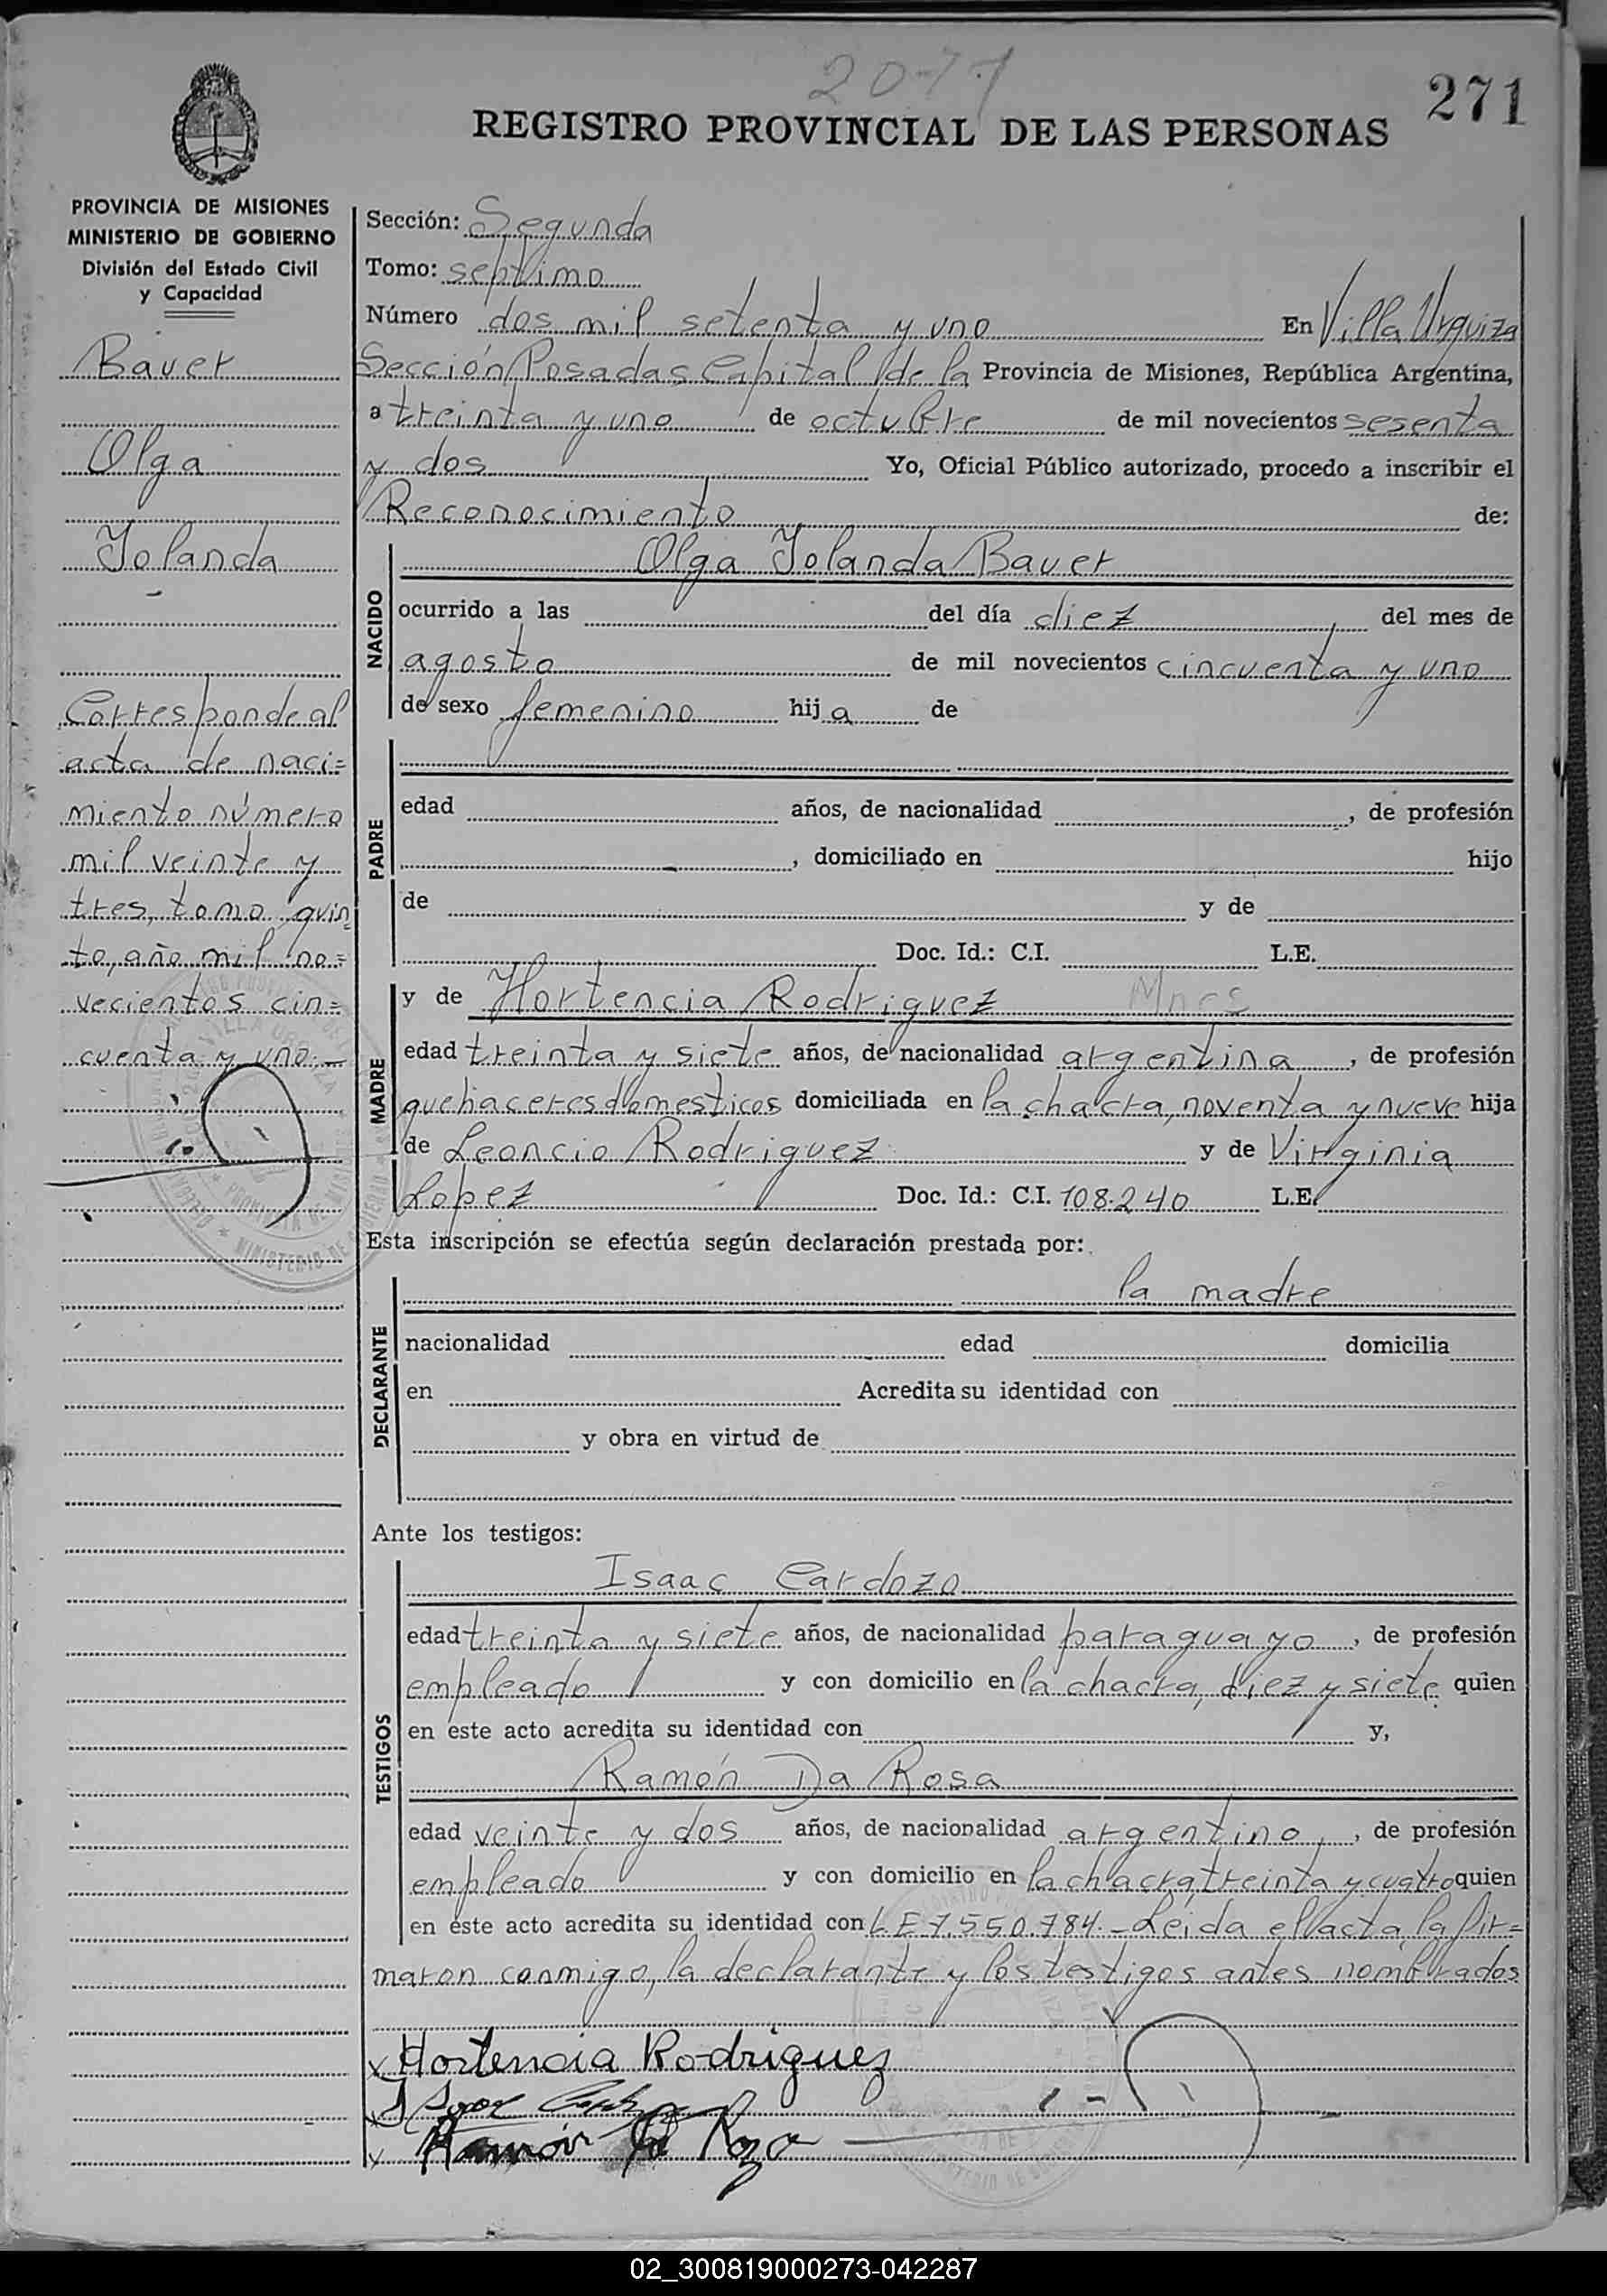 2071
271
REGISTRO PROVINCIAL DE LAS PERSONAS
PROVINCIA DE MISIONES
MINISTERIO DE GOBIERNO
División del Estado Civil
y Capacidad
Bauer
Olga
Yolanda
Corresponde al
acta de naci=
miento número
mil veinte y
tres, tomo quin
to, año mil no=
vecientos cin=
cuenta y uno.-
Sección: Segunda
Tomo: septimo
Número dos mil setenta y uno En Villa Urquiza
Sección Posadas Capital de la Provincia de Misiones, República Argentina,
a treinta y uno de octubre de mil novecientos sesenta
y dos Yo, Oficial Público autorizado, procedo a inscribir el
Reconocimiento de:
NACIDO
Olga Yolanda Bauer
ocurrido a las del día diez del mes de
agosto de mil novecientos cincuenta y uno
de sexo femenino hija de
PADRE
edad años, de nacionalidad , de profesión
, domiciliado en hijo
de y de
Doc. Id.: C.I. L.E.
MADRE
y de Hortencia Rodriguez Mnes
edad treinta y siete años, de nacionalidad argentina , de profesión
quehaceres domesticos domiciliada en la chacra, noventa y nueve hija
de Leoncio Rodriguez y de Virginia
Lopez Doc. Id.: C.I. 108.240 L.E.
Esta inscripción se efectúa según declaración prestada por:
DECLARANTE
la madre
nacionalidad edad domicilia
en Acredita su identidad con
y obra en virtud de
Ante los testigos:
TESTIGOS
Isaac Cardozo
edad treinta y siete años, de nacionalidad paraguayo , de profesión
empleado y con domicilio en la chacra, diez y siete quien
en este acto acredita su identidad con y,
Ramón Da Rosa
edad veinte y dos años, de nacionalidad argentino , de profesión
empleado y con domicilio en la chacra, treinta y cuatro quien
en este acto acredita su identidad con L.E 7.550.784.- Leida el acta, la fir=
maron conmigo, la declarante y los testigos antes nombrados
x Hortencia Rodriguez
x
x Ramón Da Roza
02_300819000273-042287